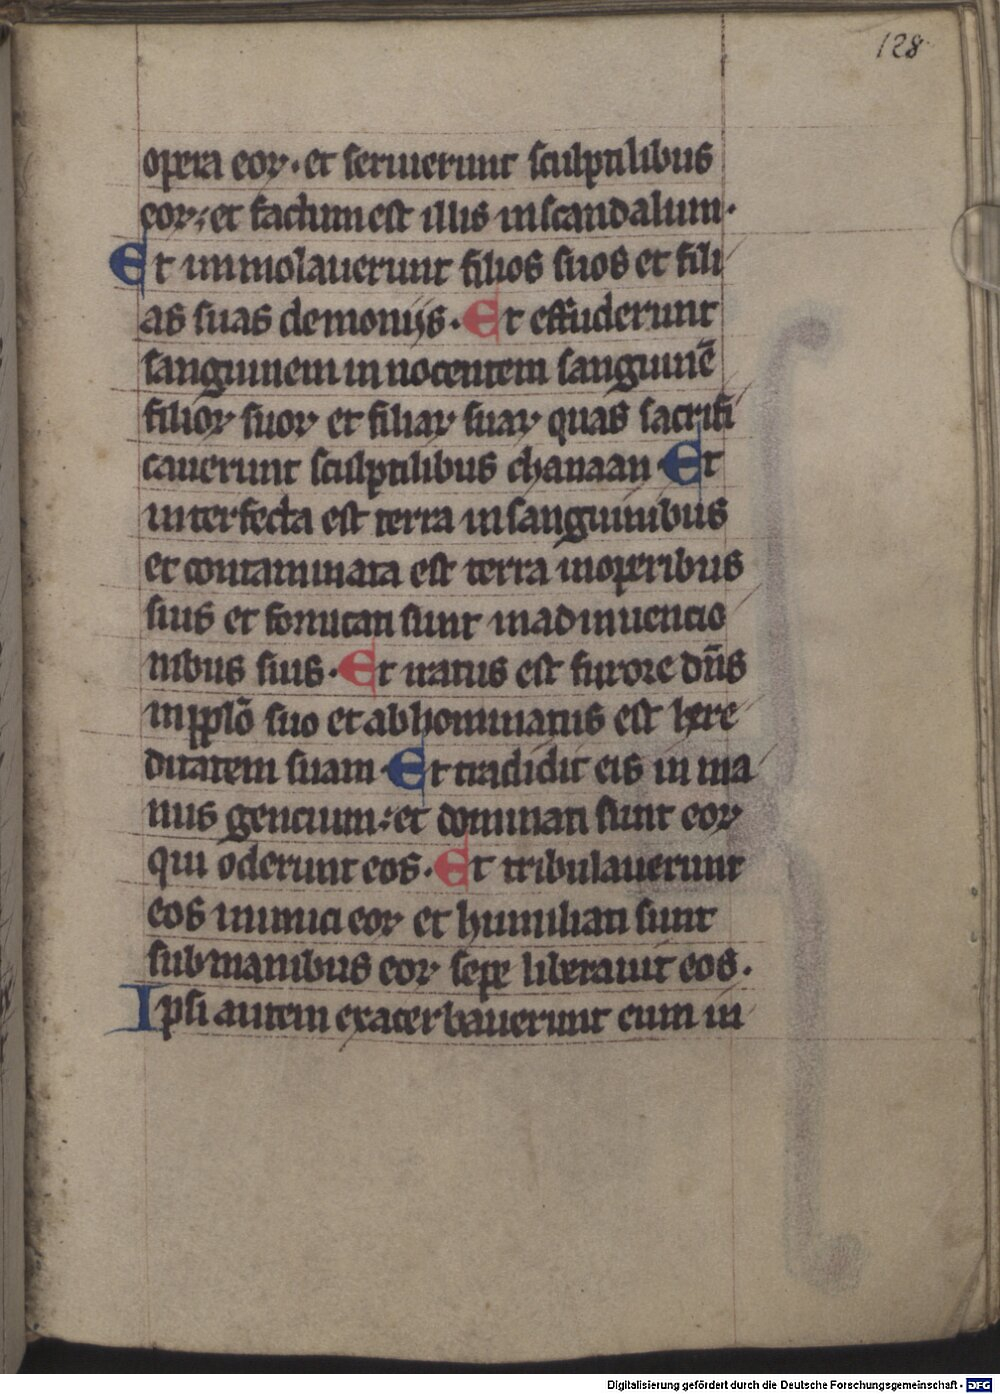 128
opera eorꝝ· et seruierunt sculptilibus
eorꝝ: et factum est illis in scandalum·
Et immolauerunt filios suos et fili
as suas demoniis· Et effuderunt
sanguinem innocentem sanguinē
filiorꝝ suorꝝ et filiarꝝ suarꝝ quas sacrifi
cauerunt sculptilibus chanaan· Et
interfecta est terra in sanguinibus
et contaminata est terra in operibus
suis et fornicati sunt in adinuencio
nibus suis· Et iratus est furore dn̄s
in pplō suo et abhominatus est here
ditatem suam· Et tradidit eis in ma
nus gencium: et dominati sunt eorꝝ
qui oderunt eos· Et tribulauerunt
eos inimici eorꝝ et humiliati sunt
sub manibus eorꝝ sepe liberauit eos·
Ipsi autem exacerbauerunt eum in
Digitalisierung gefördert durch die Deutsche Forschungsgemeinschaft - DFG